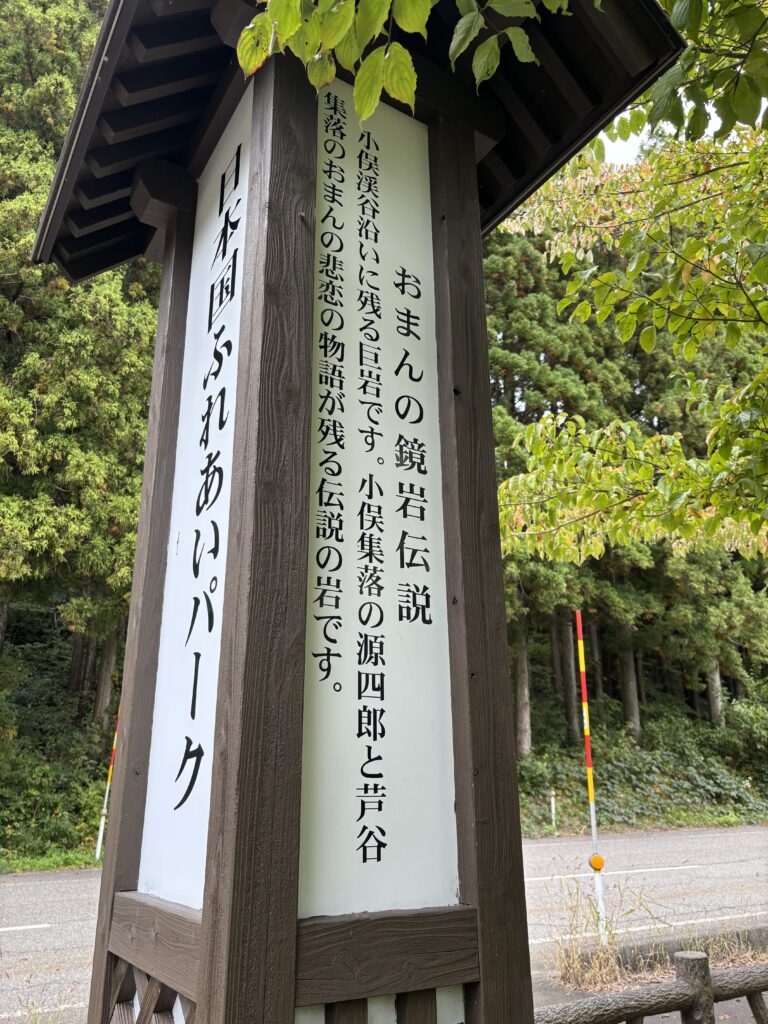 おまんの鏡岩伝説
小俣渓谷沿いに残る巨岩です。小俣集落の源四郎と芦谷
集落のおまんの悲恋の物語が残る伝説の岩です。
日本国ふれあいパーク